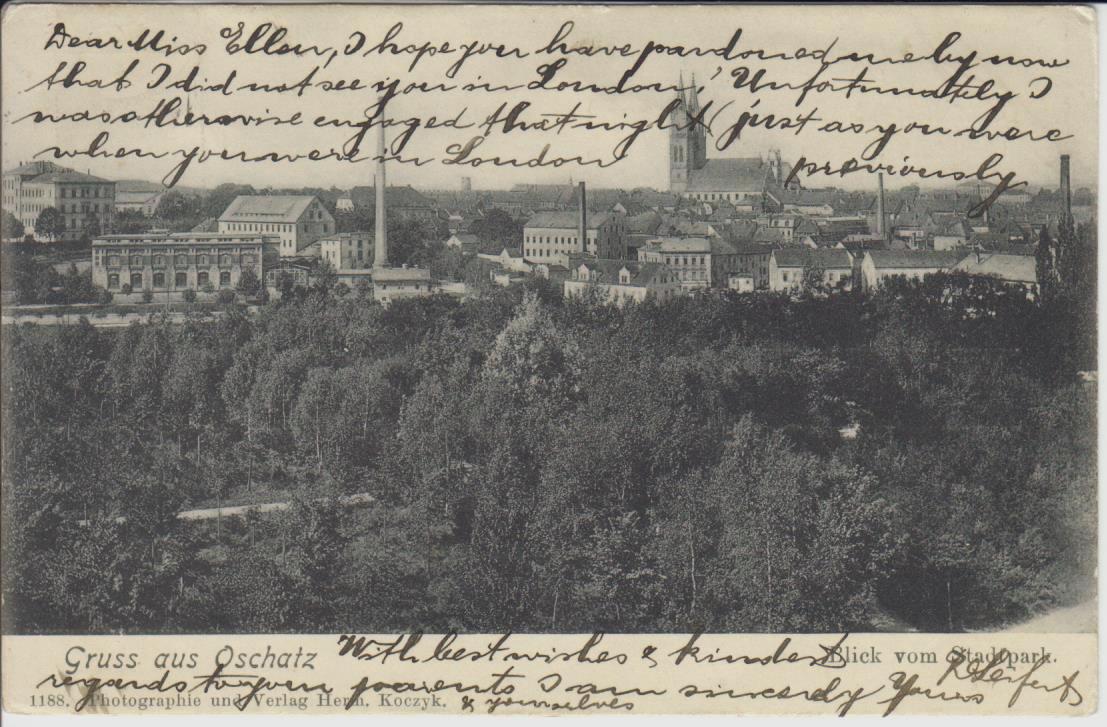 Dear Miss Ellen, I hope you have pardoned me by now
that I did not see you in London! Unfortunately I
was otherwise engaged that night (just as you were
when you were in London previously
With best wishes & kindest
Gruss aus Oschatz
Blick vom Stadtpark.
regards to your parents I am sincerely Yours
& yourselves
1188. Photographie und Verlag Herm. Koczyk.